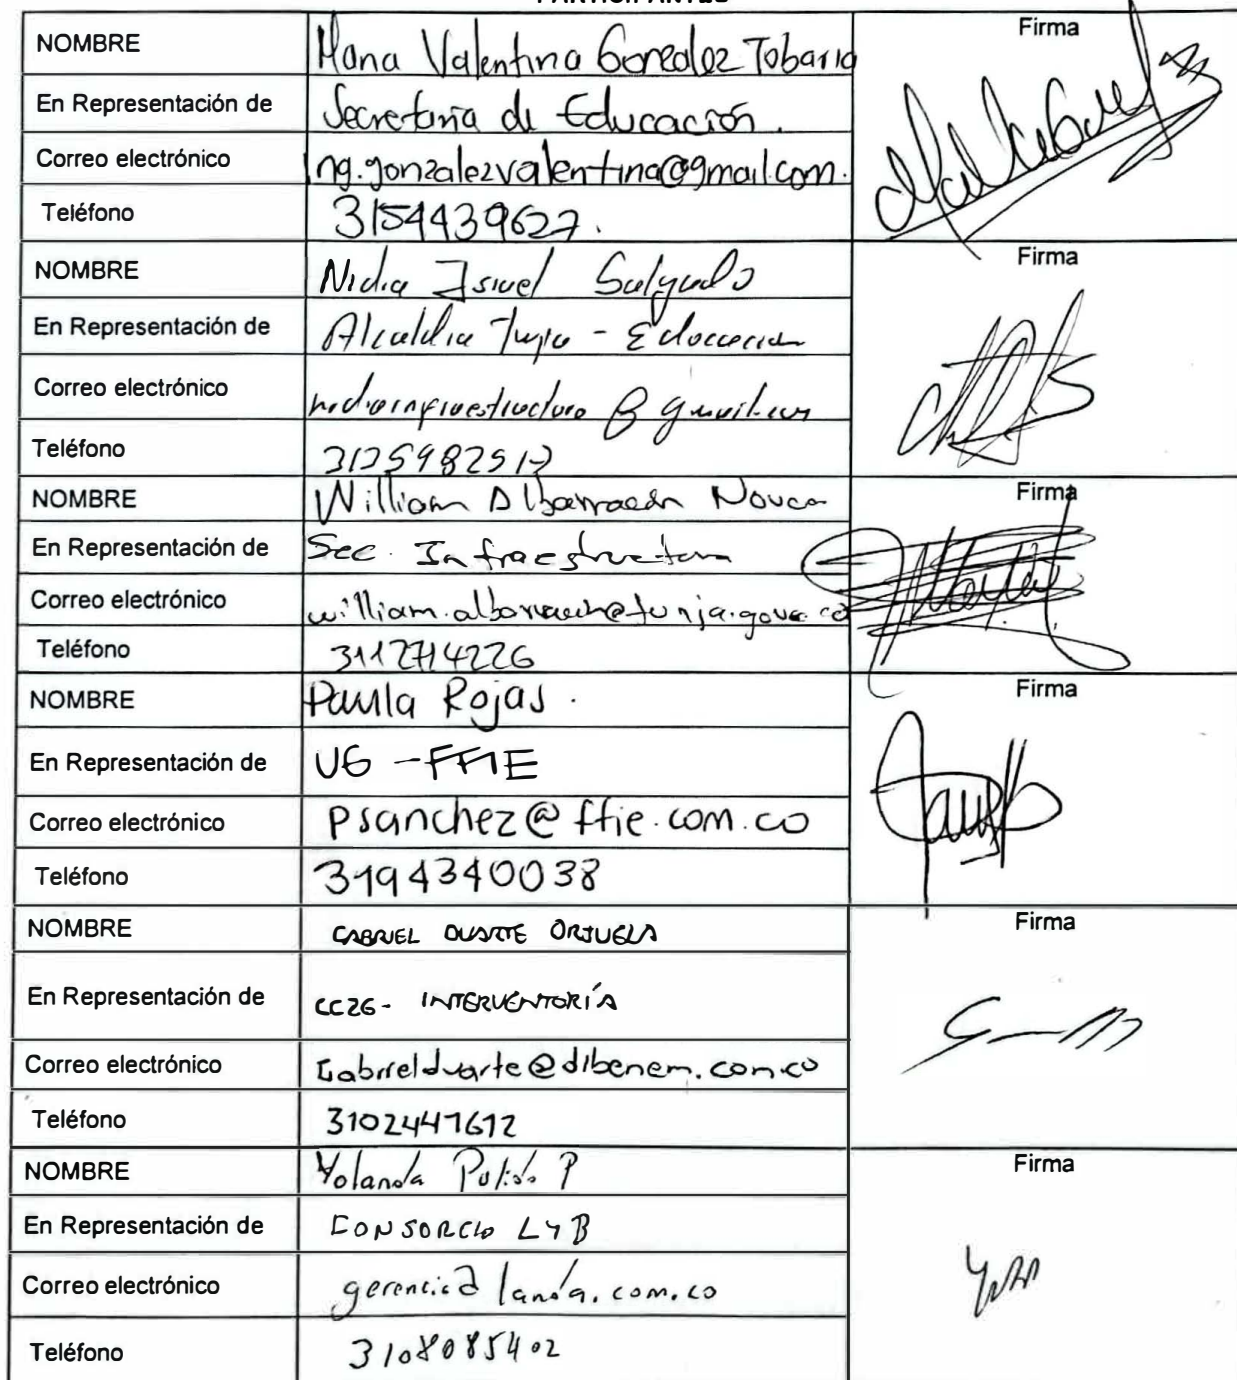 PARTICIPANTES
NOMBRE Maria Valentina Gonzalez Tobaria Firma
En Representación de Secretaria de Educación.
Correo electrónico ing.gonzalezvalentina@gmail.com.
Teléfono 3154439627.
NOMBRE Nidia Isabel Salgado Firma
En Representación de Alcaldia Tunja - Educacion
Correo electrónico nidiainfraestructura@gmail.com
Teléfono
NOMBRE William Albarracin Firma
En Representación de Sec. Infraestructura
Correo electrónico
Teléfono 3112714226
NOMBRE Paula Rojas. Firma
En Representación de UG - FFIE
Correo electrónico psanchez@ffie.com.co
Teléfono 3194340038
NOMBRE GABRIEL DUARTE ORJUELA Firma
En Representación de CC26- INTERVENTORÍA
Correo electrónico Gabrielduarte@dibenem.com.co
Teléfono 3102447672
NOMBRE Yolanda Pulido P Firma
En Representación de CONSORCIO LYB
Correo electrónico gerencia@landa.com.co
Teléfono 3108085402